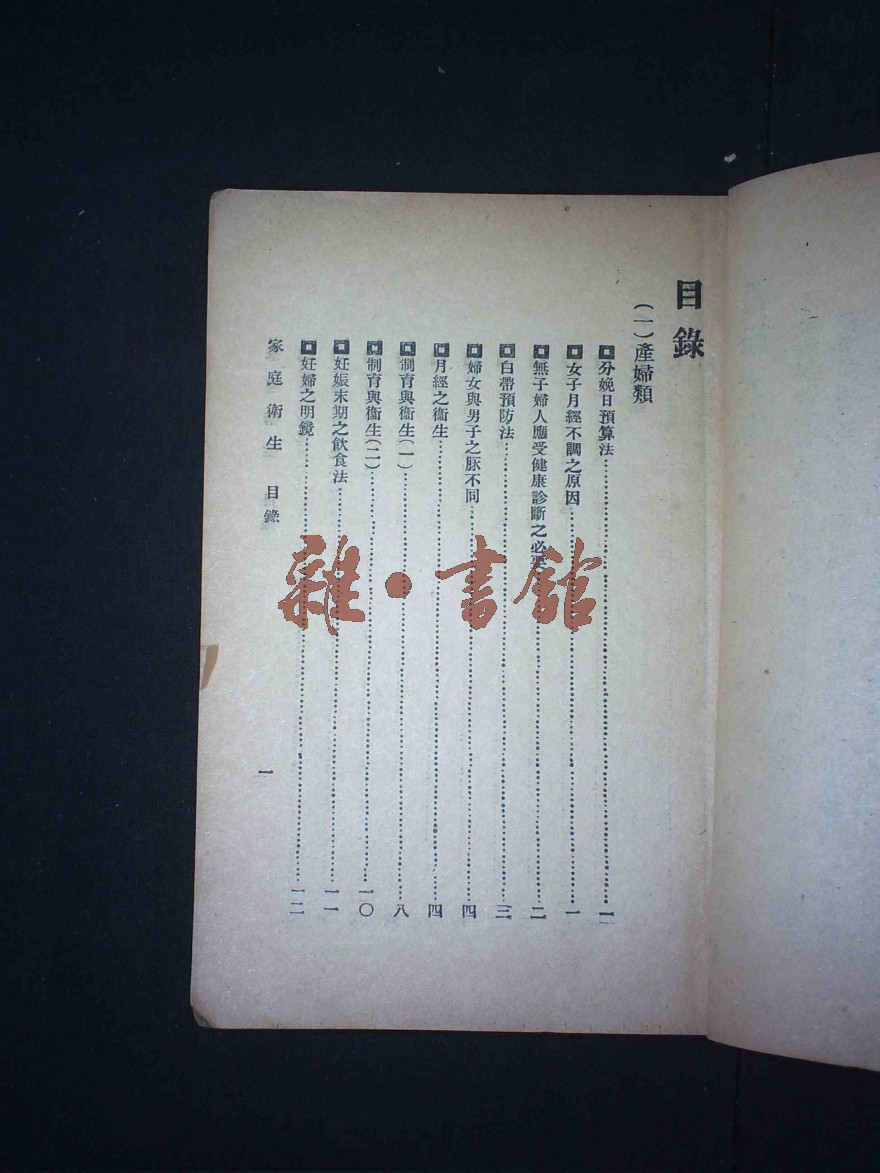 目錄
(一)產婦類
分娩日預算法……一
女子月經不調之原因……一
無子婦人應受健康診斷之必要……二
白帶預防法……三
婦女與男子之脉不同……四
月經之衞生……四
制育與衞生(一)……八
制育與衞生(二)……一〇
妊娠末期之飲食法……一一
妊婦之明鏡……一二
家庭衞生 目錄
一
雜·書館